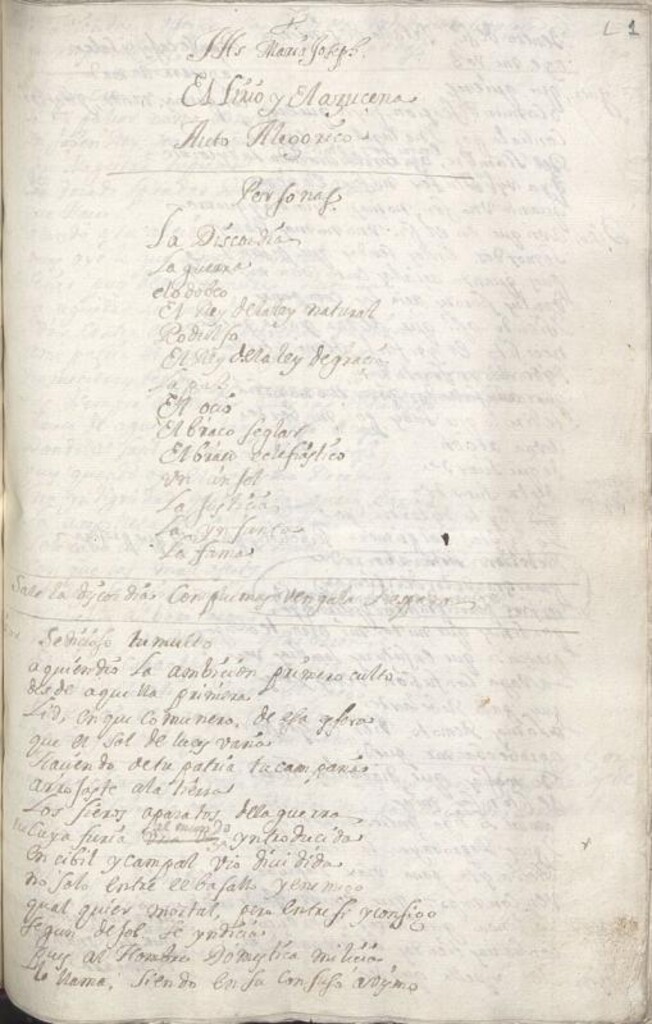 1
JHs Maria Joseph.
El Lirio y El açucena
Auto Alegorico
Personas
La Discordia
La guerra
El Rey de la ley natural
Rodulfo
El Rey de la ley de graçia
La paz
El oçio
El braço seglar
El braço eclesiástico
La justiçia
La fama
Sale la discordia con plumas y vengala
Sediçioso tumulto
a quien dio la ambiçion primero culto
desde aquella primera
Lid, en que comunero, de esa esfera
que el sol de luçes varia
haçiendo de tu patria tu campaña
arrojaste a la tierra
Los fieros aparatos de la guerra
Cuya furia al mundo yntroduçida
en çibil y campal vio diuidida
no solo entre el basallo y enemigo
qual quier mortal, pero entre si y consigo
segun de Job se yndiçia
pues al Hombre Domestica miliçia
le llama, siendo en su confuso abysmo